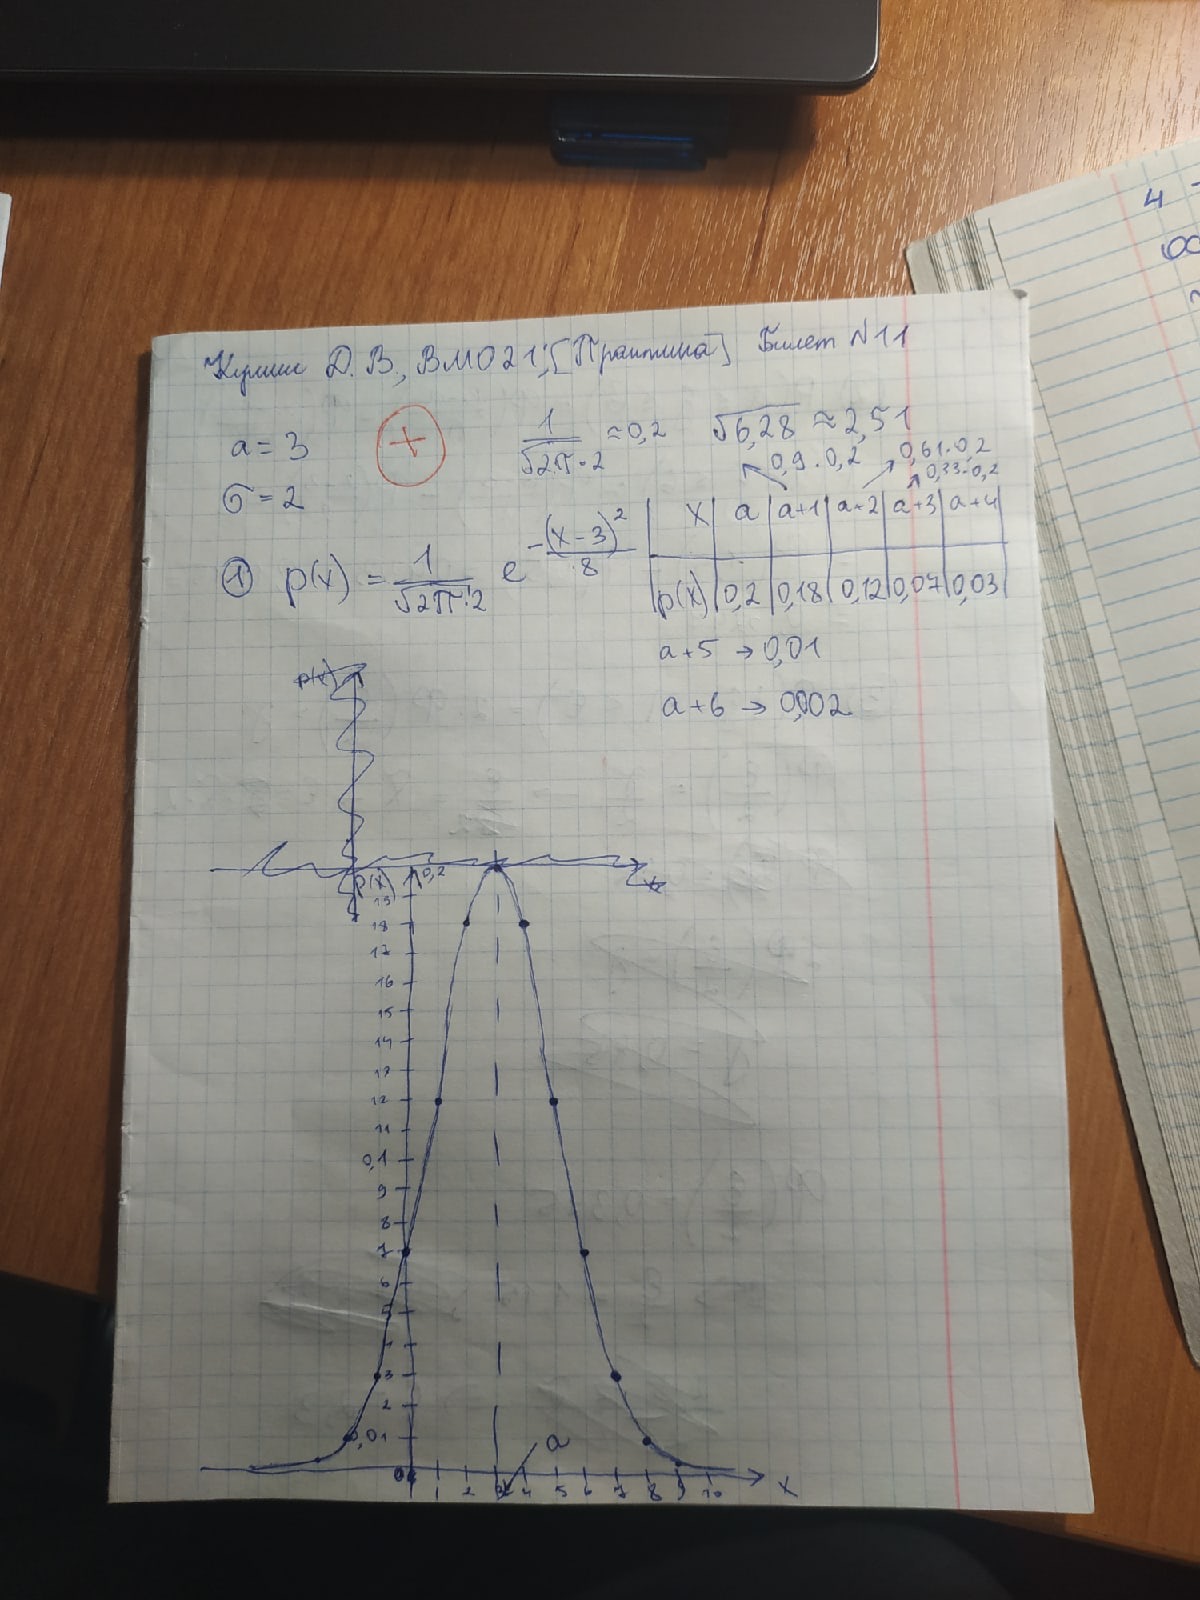 Д. В., ВМО21, [Практика] Билет №11
a = 3
σ = 2
1/(√2π · 2) ≈ 0,2 √6,28 ≈ 2,51
0,9 · 0,2 0,61 · 0,2
0,33 · 0,2
① p(x) = 1/(√2π · 2) e^(-(x-3)²/8)
x | a | a+1 | a+2 | a+3 | a+4
p(x) | 0,2 | 0,18 | 0,12 | 0,07 | 0,03
a+5 → 0,01
a+6 → 0,002
p(x)
x
p(x) 0,2
19
18
17
16
15
14
13
12
11
0,1
9
8
7
6
5
4
3
2
0,01
a
0 1 2 3 4 5 6 7 8 9 10 x
4